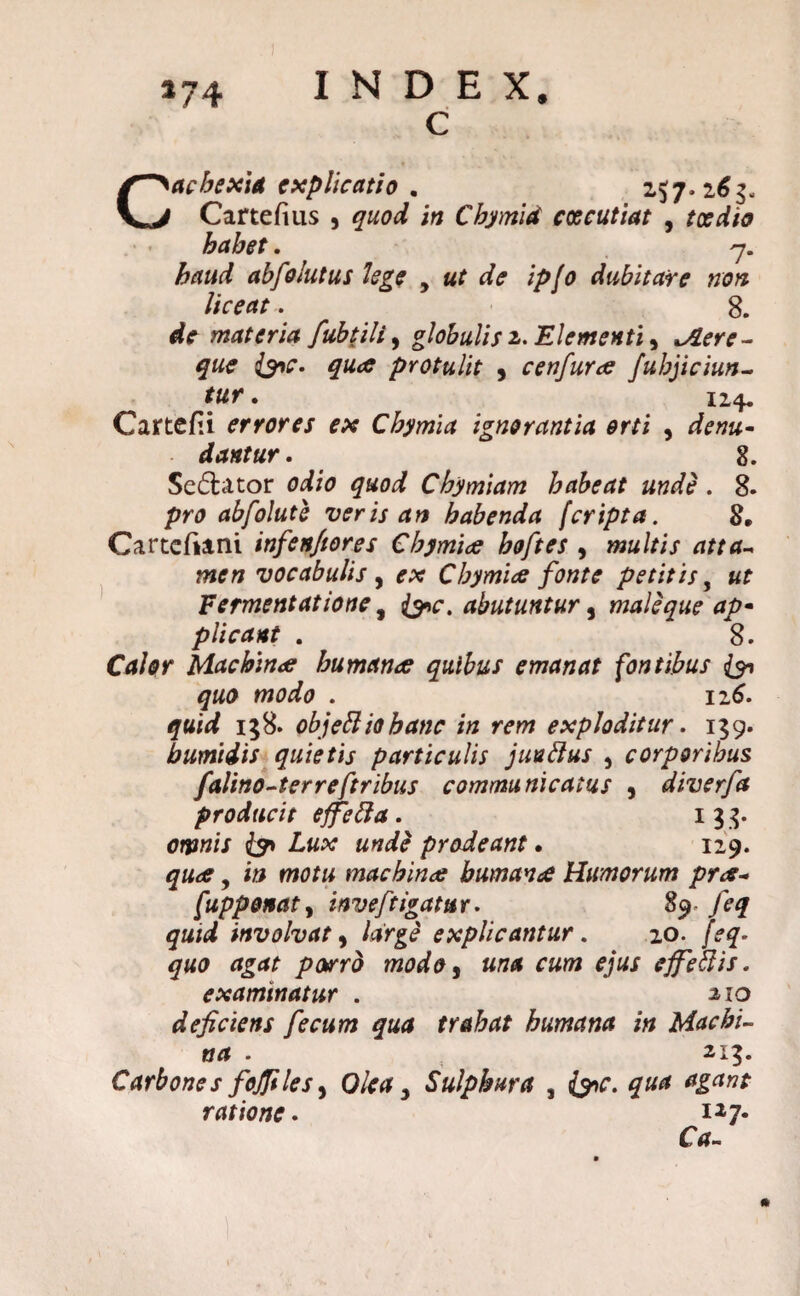 274 INDEX.
C
Cachexiæ explicatio . 257. 263.
Cartesius , quod in Chymiâ cœcutiat , tœdio
habet . 7.
haud absolutus lege , ut de ipso dubitare non
liceat . 8.
de materia subtili , globulis 2. Elementi , Aere-
que &c. quæ protulit , censuræ subjiciun-
tur . 124.
Cartesii errores ex Chymia ignorantia orti , denu-
dantur . 8.
Sectator odio quod Chymiam habeat undè . 8.
pro absolutè veris an habenda scripta . 8.
Cartesiani infensiores Chymiæ hostes , multis atta-
men vocabulis , ex Chymiæ fonte petitis , ut
Fermentatione , &c. abutuntur , malèque ap-
plicant . 8.
Calor Machinæ humanæ quibus emanat fontibus &
quo modo . 126.
quid 138. objectio hanc in rem exploditur . 139.
humidis quietis particulis junctus , corporibus
salino-terrestribus communicatus , diversa
producit effecta . 133.
omnis & Lux undè prodeant . 129.
quæ , in motu machinæ humanæ Humorum præ-
supponat , investigatur . 89. seq
quid involvat , largè explicantur . 20. seq.
quo agat porrò modo , una cum ejus effectis .
examinatur . 210
deficiens secum qua trahat humana in Machi-
na . 213.
Carbones fossiles , Olea , Sulphura , &c. qua agant
ratione . 127.
Ca-